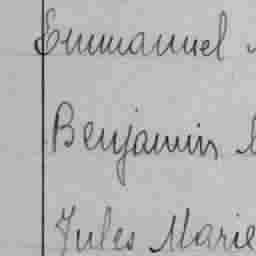 Emmanuel
Benjamin
Jules Marie